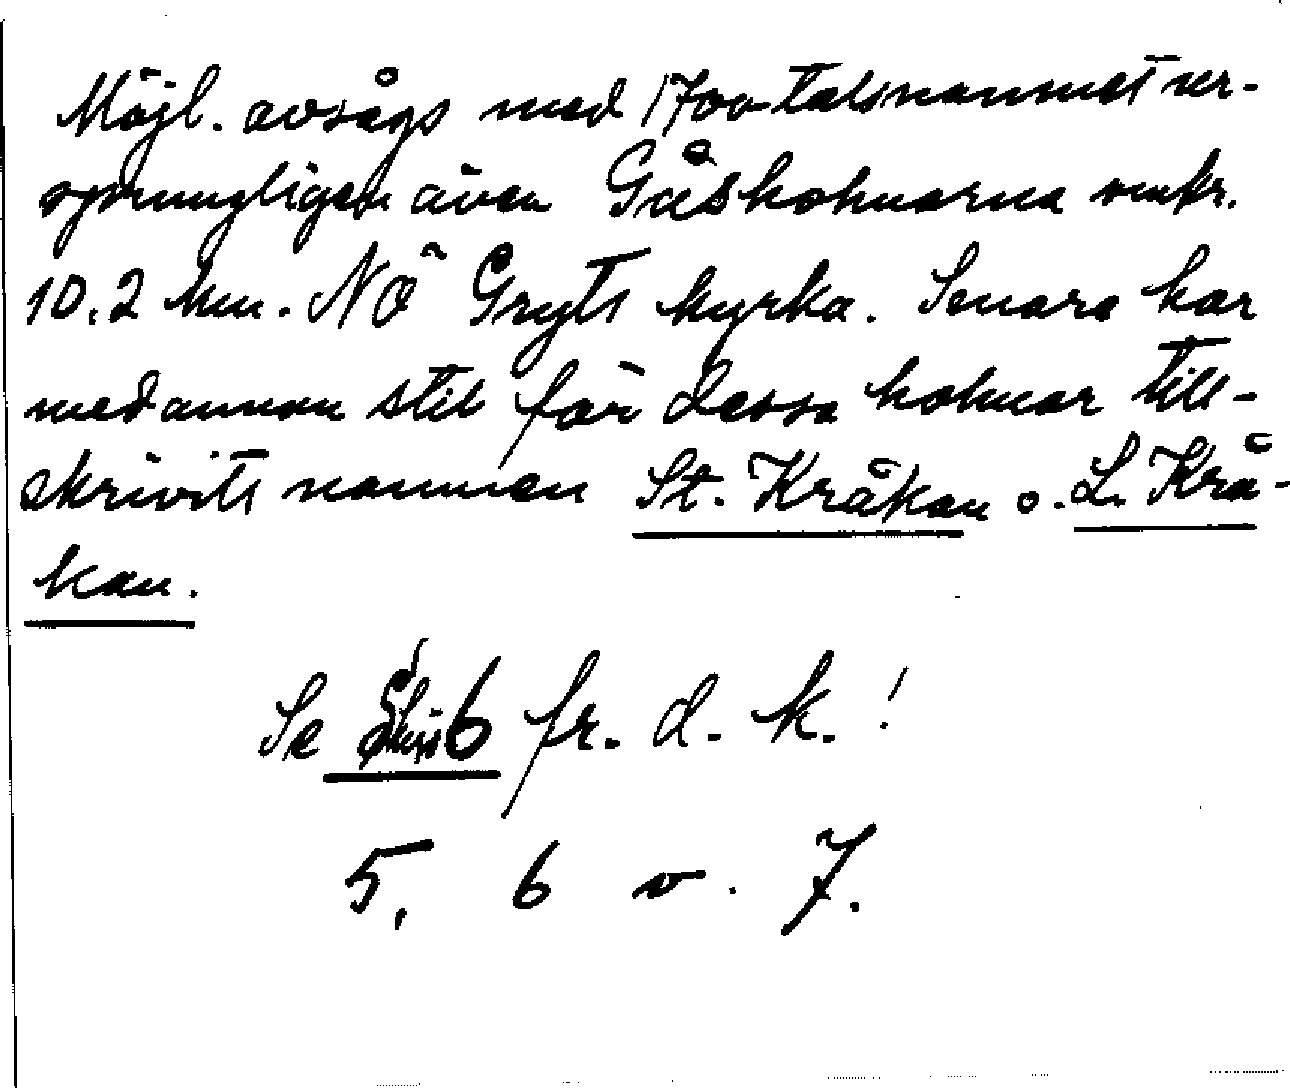 Möjl. avsågs med 1700-talsnamnet ur-
sprungligen även Gåsholmarna omkr.
10,2 km. NÖ Gryts kyrka. Senare har
med annan stil för dessa holmar till-
skrivits namnen St. Kråkan o. L. Krå-
kan.
Se 6 fr. d. k.!
5, 6 o. 7.